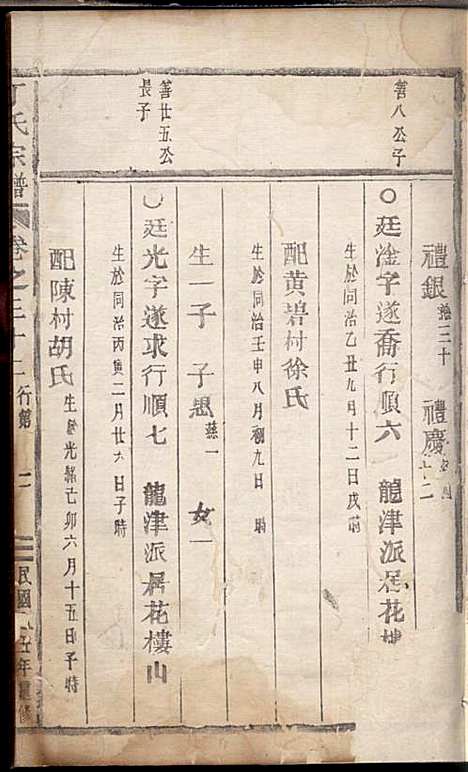 禮銀 三十 禮慶
善八公子
廷淦字遂喬行順六 龍津派居花樓
生於同治乙丑九月十二日戌時
配黃碧村徐氏
生於同治壬申八月初九日 時
生一子 子愚 慈一 女一
善廿五公長子
廷光字遂求行順七 龍津派居花樓山
生於同治丙寅二月廿六日子時
配陳村胡氏 生於光緒己卯六月十五日子時
丁氏宗譜 卷之三十二 行第 民國 壬午重修